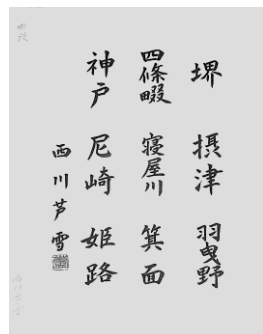 堺 摂津 羽曳野
四條畷 寝屋川 箕面
神戸 尼崎 姫路
西川芦雪